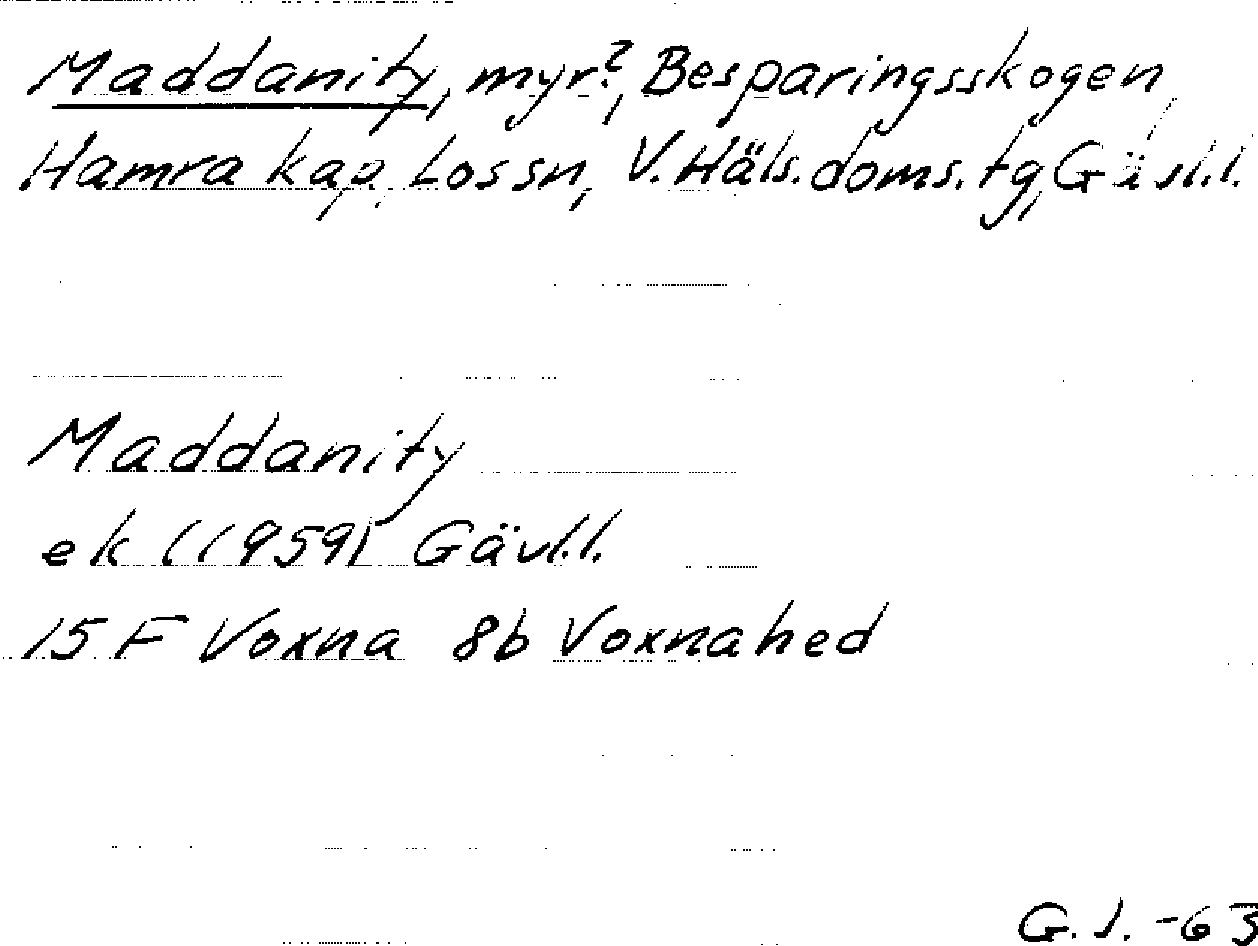 Maddanity, myr?, Besparingsskogen,
Hamra kap, Los sn, V. Häls. doms. tg, Gävl.l.
Maddanity
ek (1959) Gävl.l.
15 F Voxna 8b Voxnahed
G.J. -63